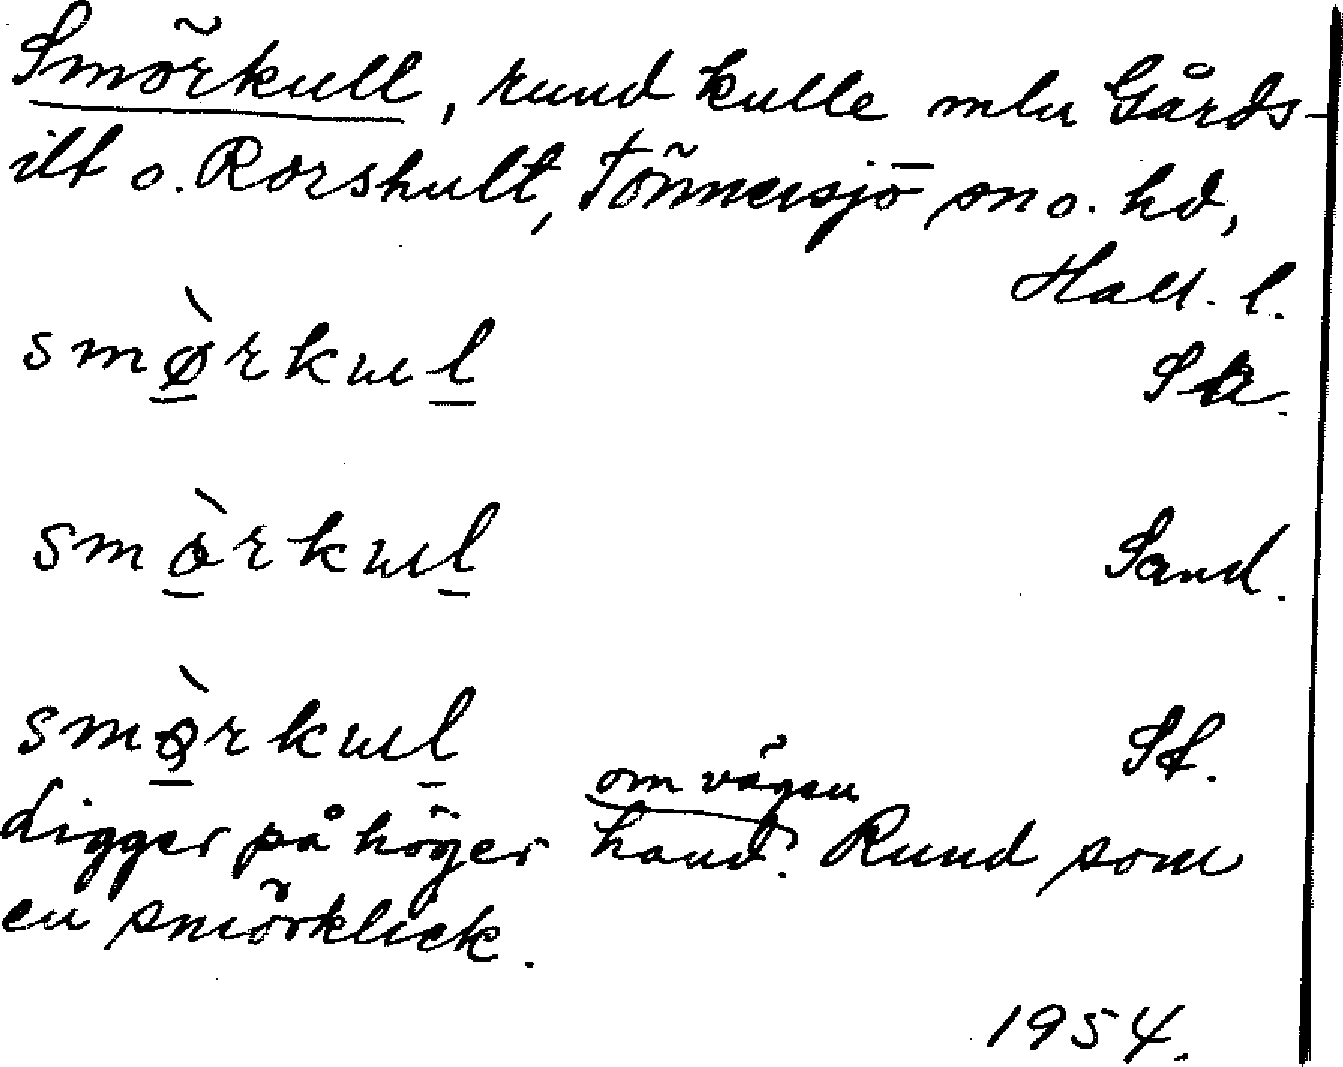 Smörkull, rund kulle mln Gårds-
ilt o. Rorshult, Tönnersjö sn o. hd,
Hall. l.
smø̀rkul Sk.
smòrkul Sand.
smø̀rkul St.
om vägen
Ligger på höger hand. Rund som
en smörklick.
1954.